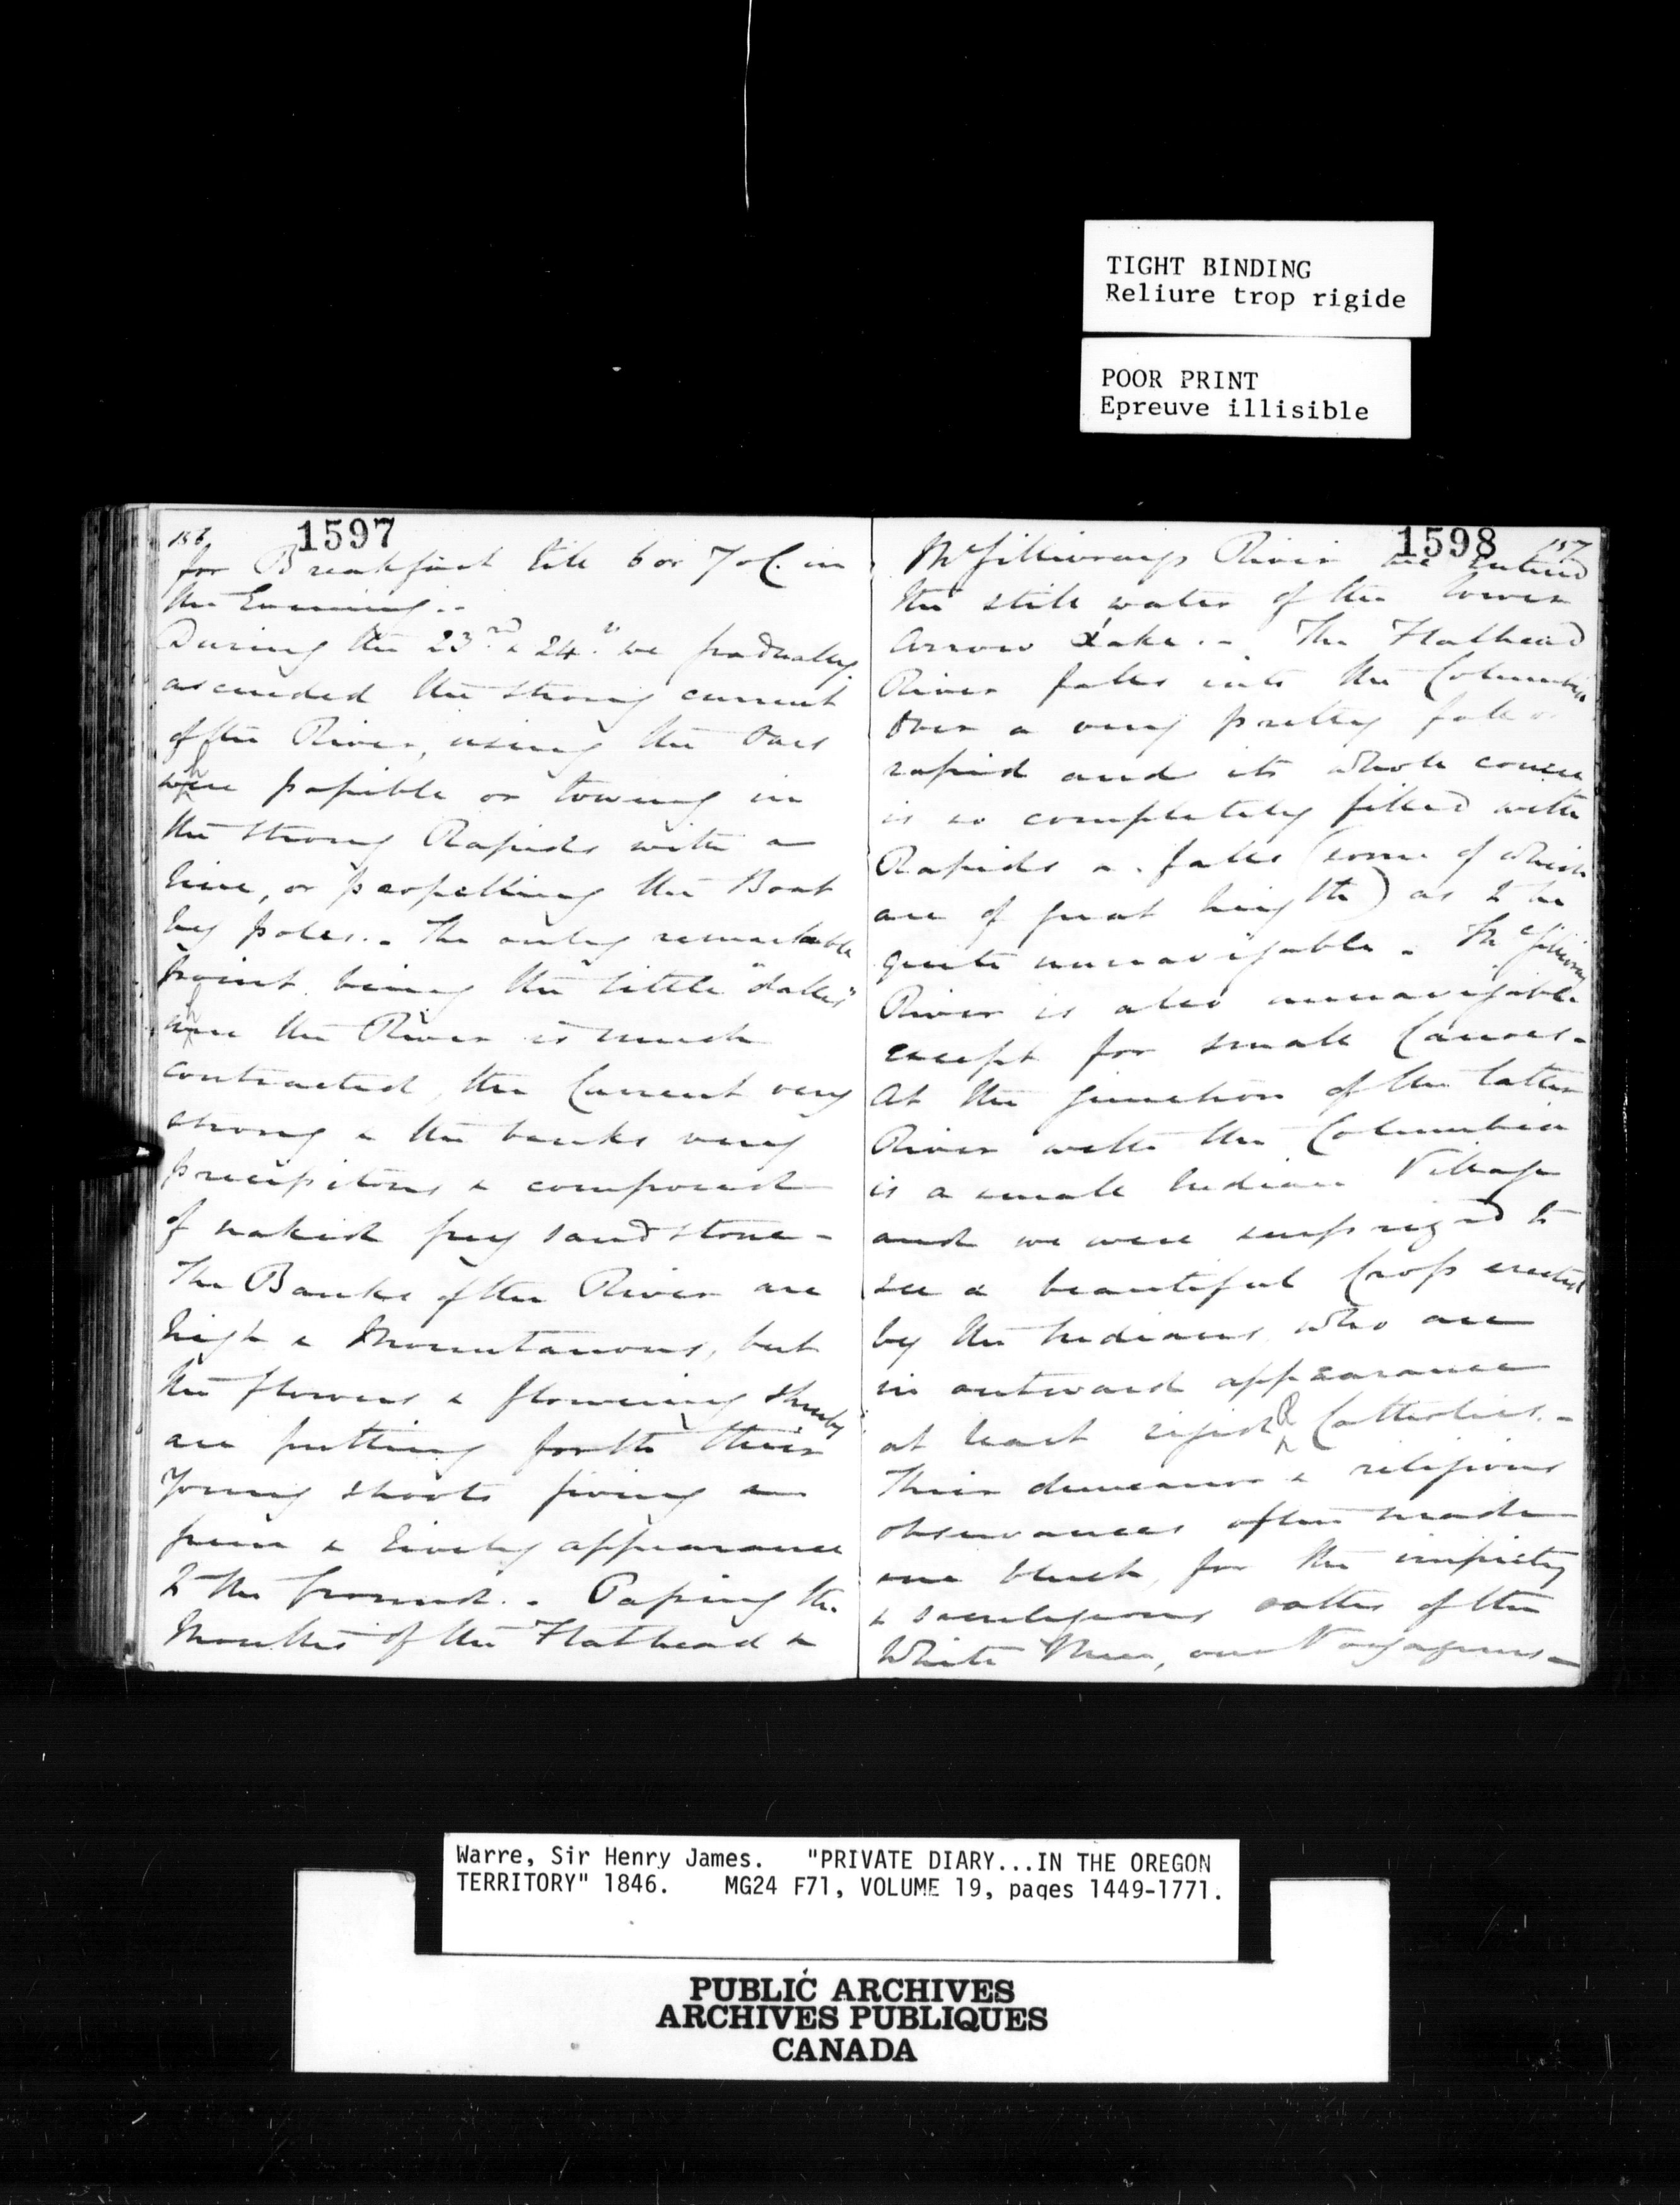 TIGHT BINDING
Reliure trop rigide
POOR PRINT
Epreuve illisible
156.
1597
for Breakfast till 6 or 7 oC. in
the Evening..
During the 23rd & 24th we gradually
ascended the strong current
of the River, using the Oars
where possible or towing in
the strong Rapids with a
line, or propelling the Boat
by poles.. The only remarkable
point being the little "dalles"
where the River is much
contracted, the Current very
strong & the banks very
precipitous & composed
of naked grey sandstone -
The Banks of the River are
high & Mountanous, but
the flowers & flowering shrubs
are putting forth their
Young shoots giving a
green & lively appearance
to the ground.. Passing the
Mouths of the Flathead &
1598
157
McGillivrays River we Entered
the still water of the lower
Arrow Lake.- The Flathead
River falls into the Columbia
over a very pretty fall or
rapid and its whole course
is so completely filled with
Rapids & falls (some of which
are of great heighth) as to be
quite unnavigable. McGillivray
River is also unnavigable
except for small Canoes-
At the junction of the latter
River with the Columbia
is a small Indian Village
and we were surprized to
see a beautiful Cross erected
by the Indians who are
in outward appearance
at least rigid R Catholics.-
Their demeanor & religious
observances often made
me blush, for the impiety
& sacreligious oaths of the
White Men, our Voyageurs-
Warre, Sir Henry James. "PRIVATE DIARY...IN THE OREGON
TERRITORY" 1846. MG24 F71, VOLUME 19, pages 1449-1771.
PUBLIC ARCHIVES
ARCHIVES PUBLIQUES
CANADA